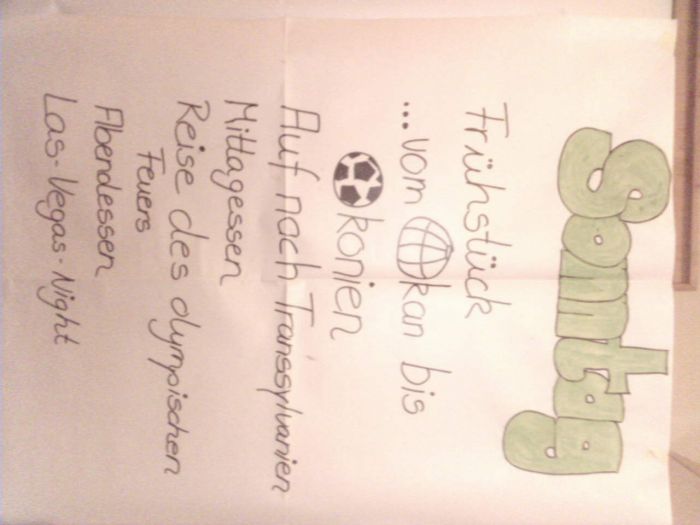 Sonntag
Frühstück
...vom kan bis
konien
Auf nach Transsylvanien
Mittagessen
Reise des olympischen
Feuers
Abendessen
Las-Vegas-Night